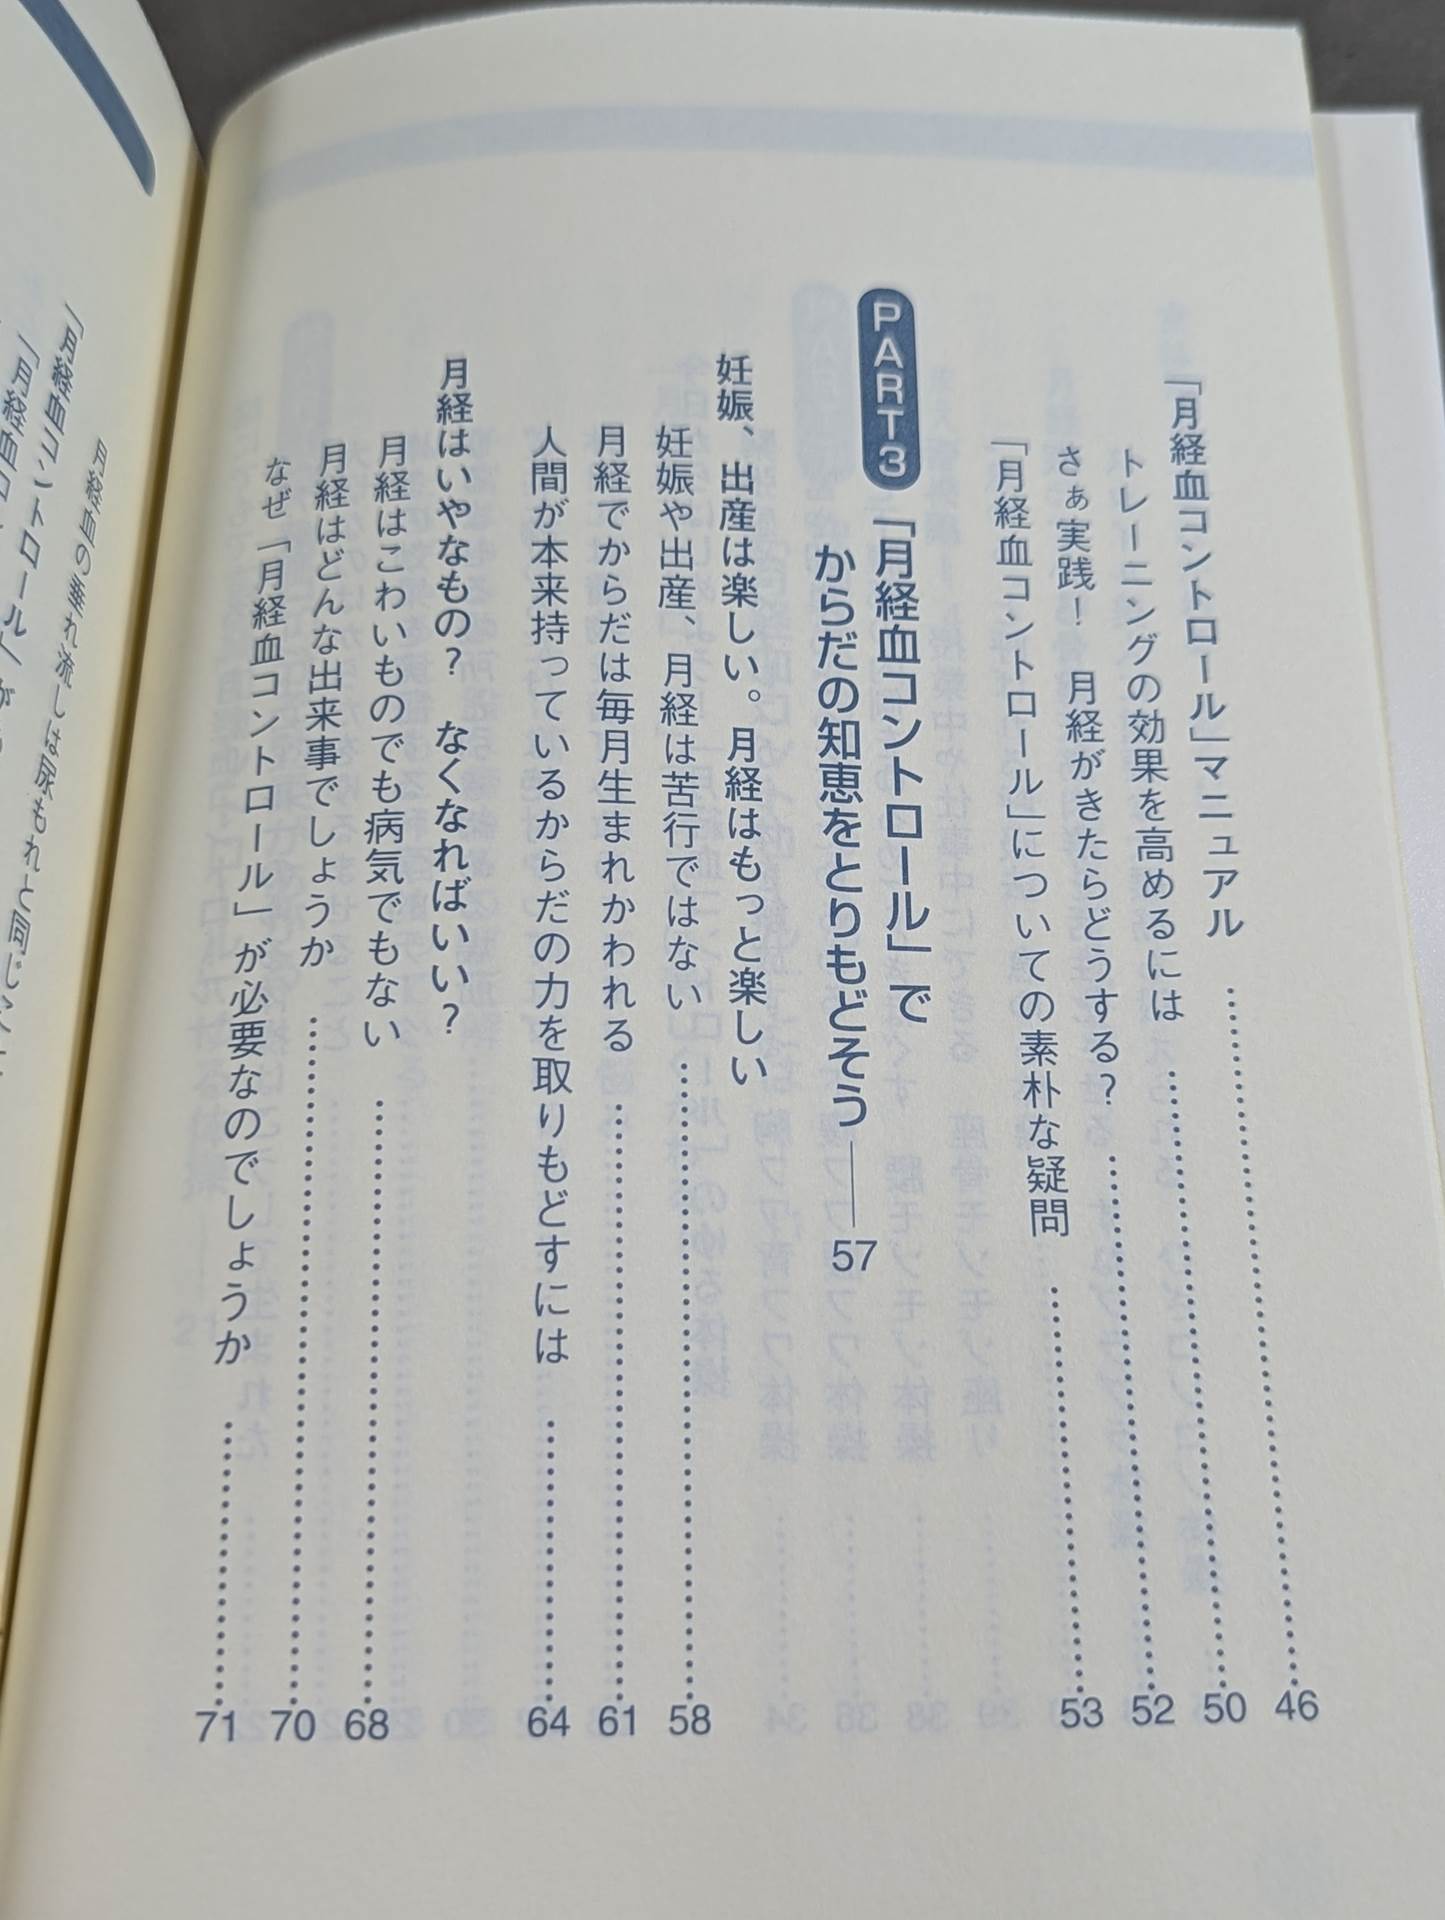 「月経血コントロール」マニュアル……46
トレーニングの効果を高めるには……50
さぁ実践！　月経がきたらどうする？……52
「月経血コントロール」についての素朴な疑問……53
PART3
「月経血コントロール」で
からだの知恵をとりもどそう――57
妊娠、出産は楽しい。月経はもっと楽しい
妊娠や出産、月経は苦行ではない……58
月経でからだは毎月生まれかわれる……61
人間が本来持っているからだの力を取りもどすには……64
月経はいやなもの？　なくなればいい？
月経はこわいものでも病気でもない……68
月経はどんな出来事でしょうか……70
なぜ「月経血コントロール」が必要なのでしょうか……71
月経血の垂れ流しは尿もれと同じ
「月経血コントロール」が
「月経血コ